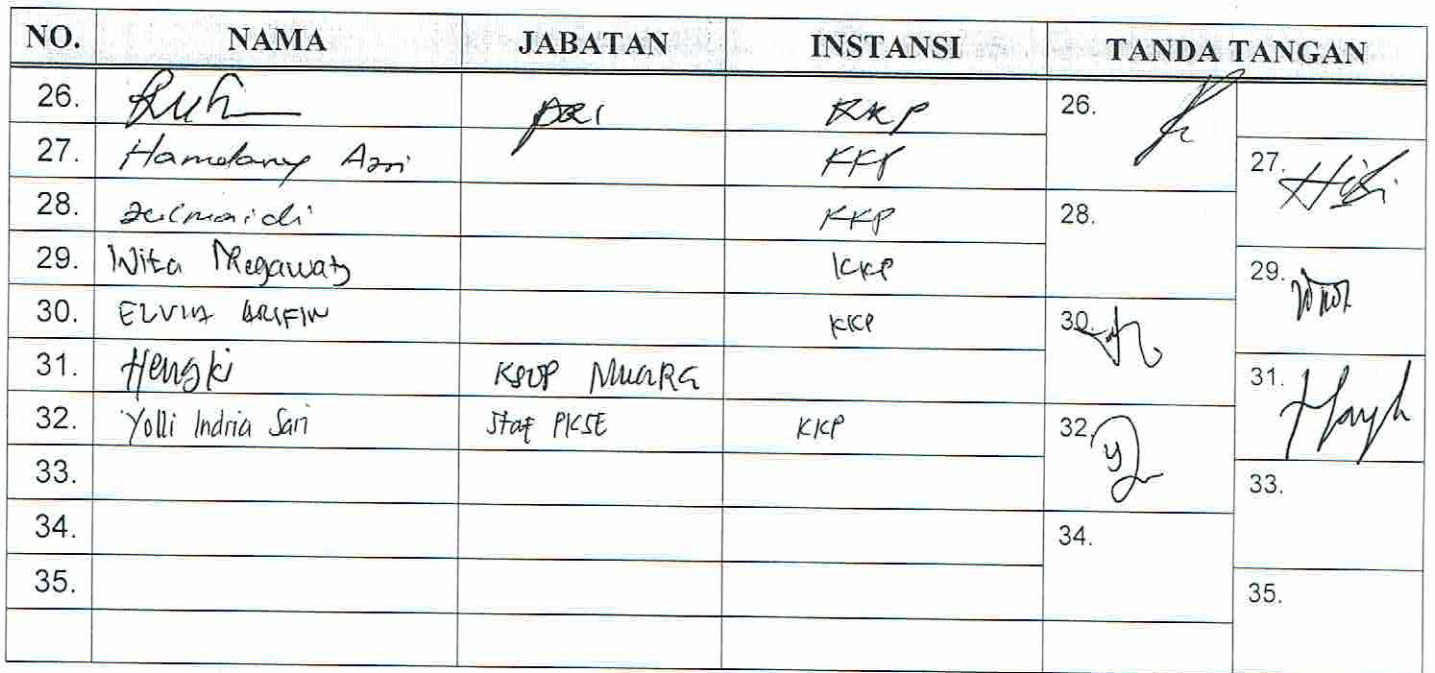 NO. NAMA JABATAN INSTANSI TANDA TANGAN
26. KKP 26.
27. Hamdany Azri KKP 27.
28. Zulmaidi KKP 28.
29. Wita Megawaty KKP 29.
30. ELVIA ARIFIN KKP 30.
31. Hengki KSOP MuaRa 31.
32. Yolli Indria Sari Staf PKSE KKP 32.
33. 33.
34. 34.
35. 35.